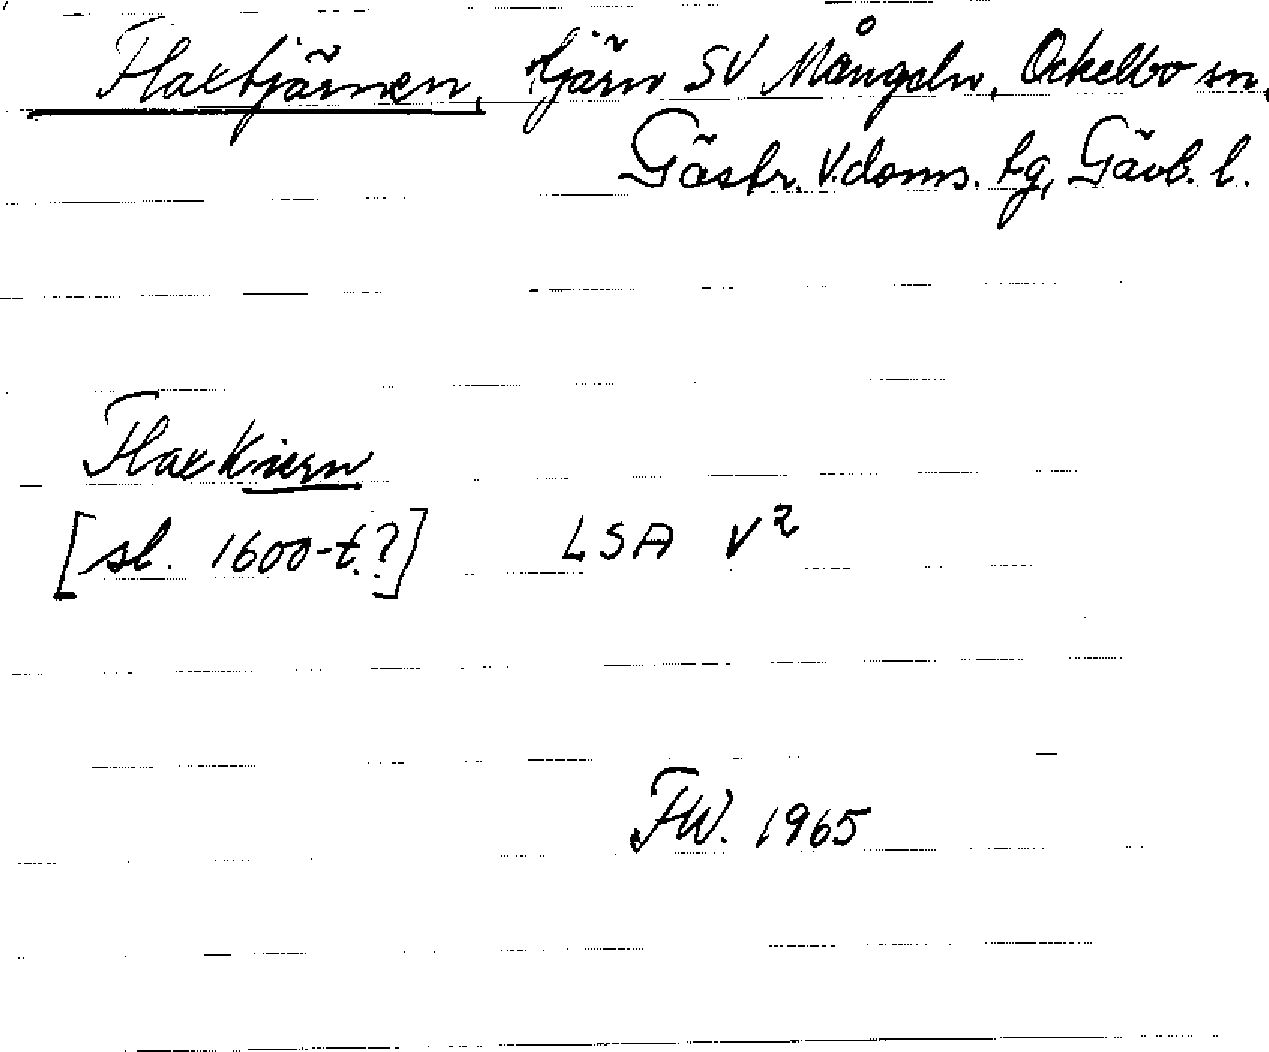 Flaxtjärnen, tjärn SV Mångeln, Ockelbo sn,
Gästr. V. doms. tg, Gävl. l.
Flax Kiern
[sl. 1600-t.?] LSA V²
FW. 1965